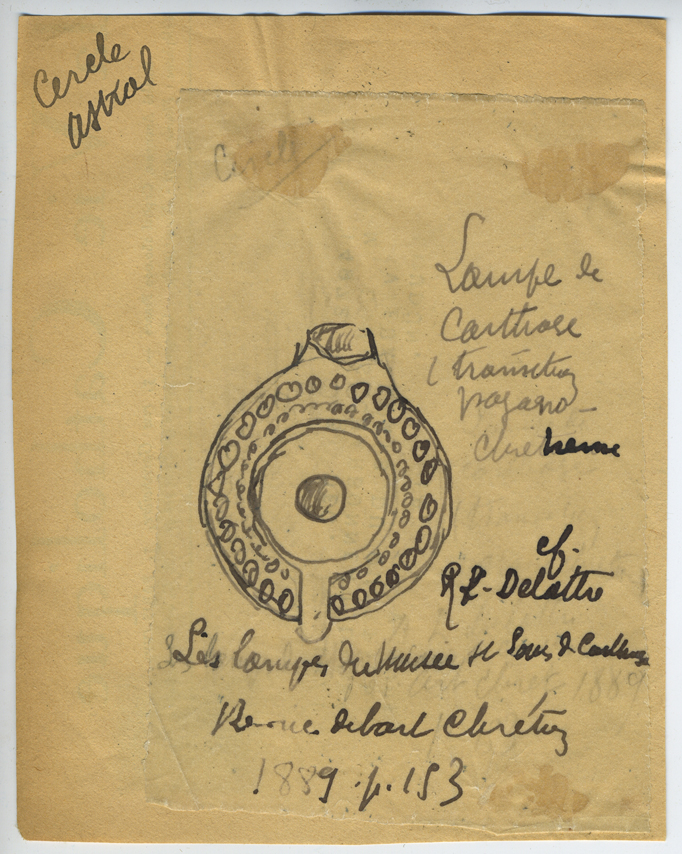 Cercle
astral
Cercle
Lampe de
Carthage
( transition
pagano-
chrétienne
cf.
R P. Delattre
Les lampes du Musée St Louis de Carthage
Revue de l'art Chrétien
1889 p. 153